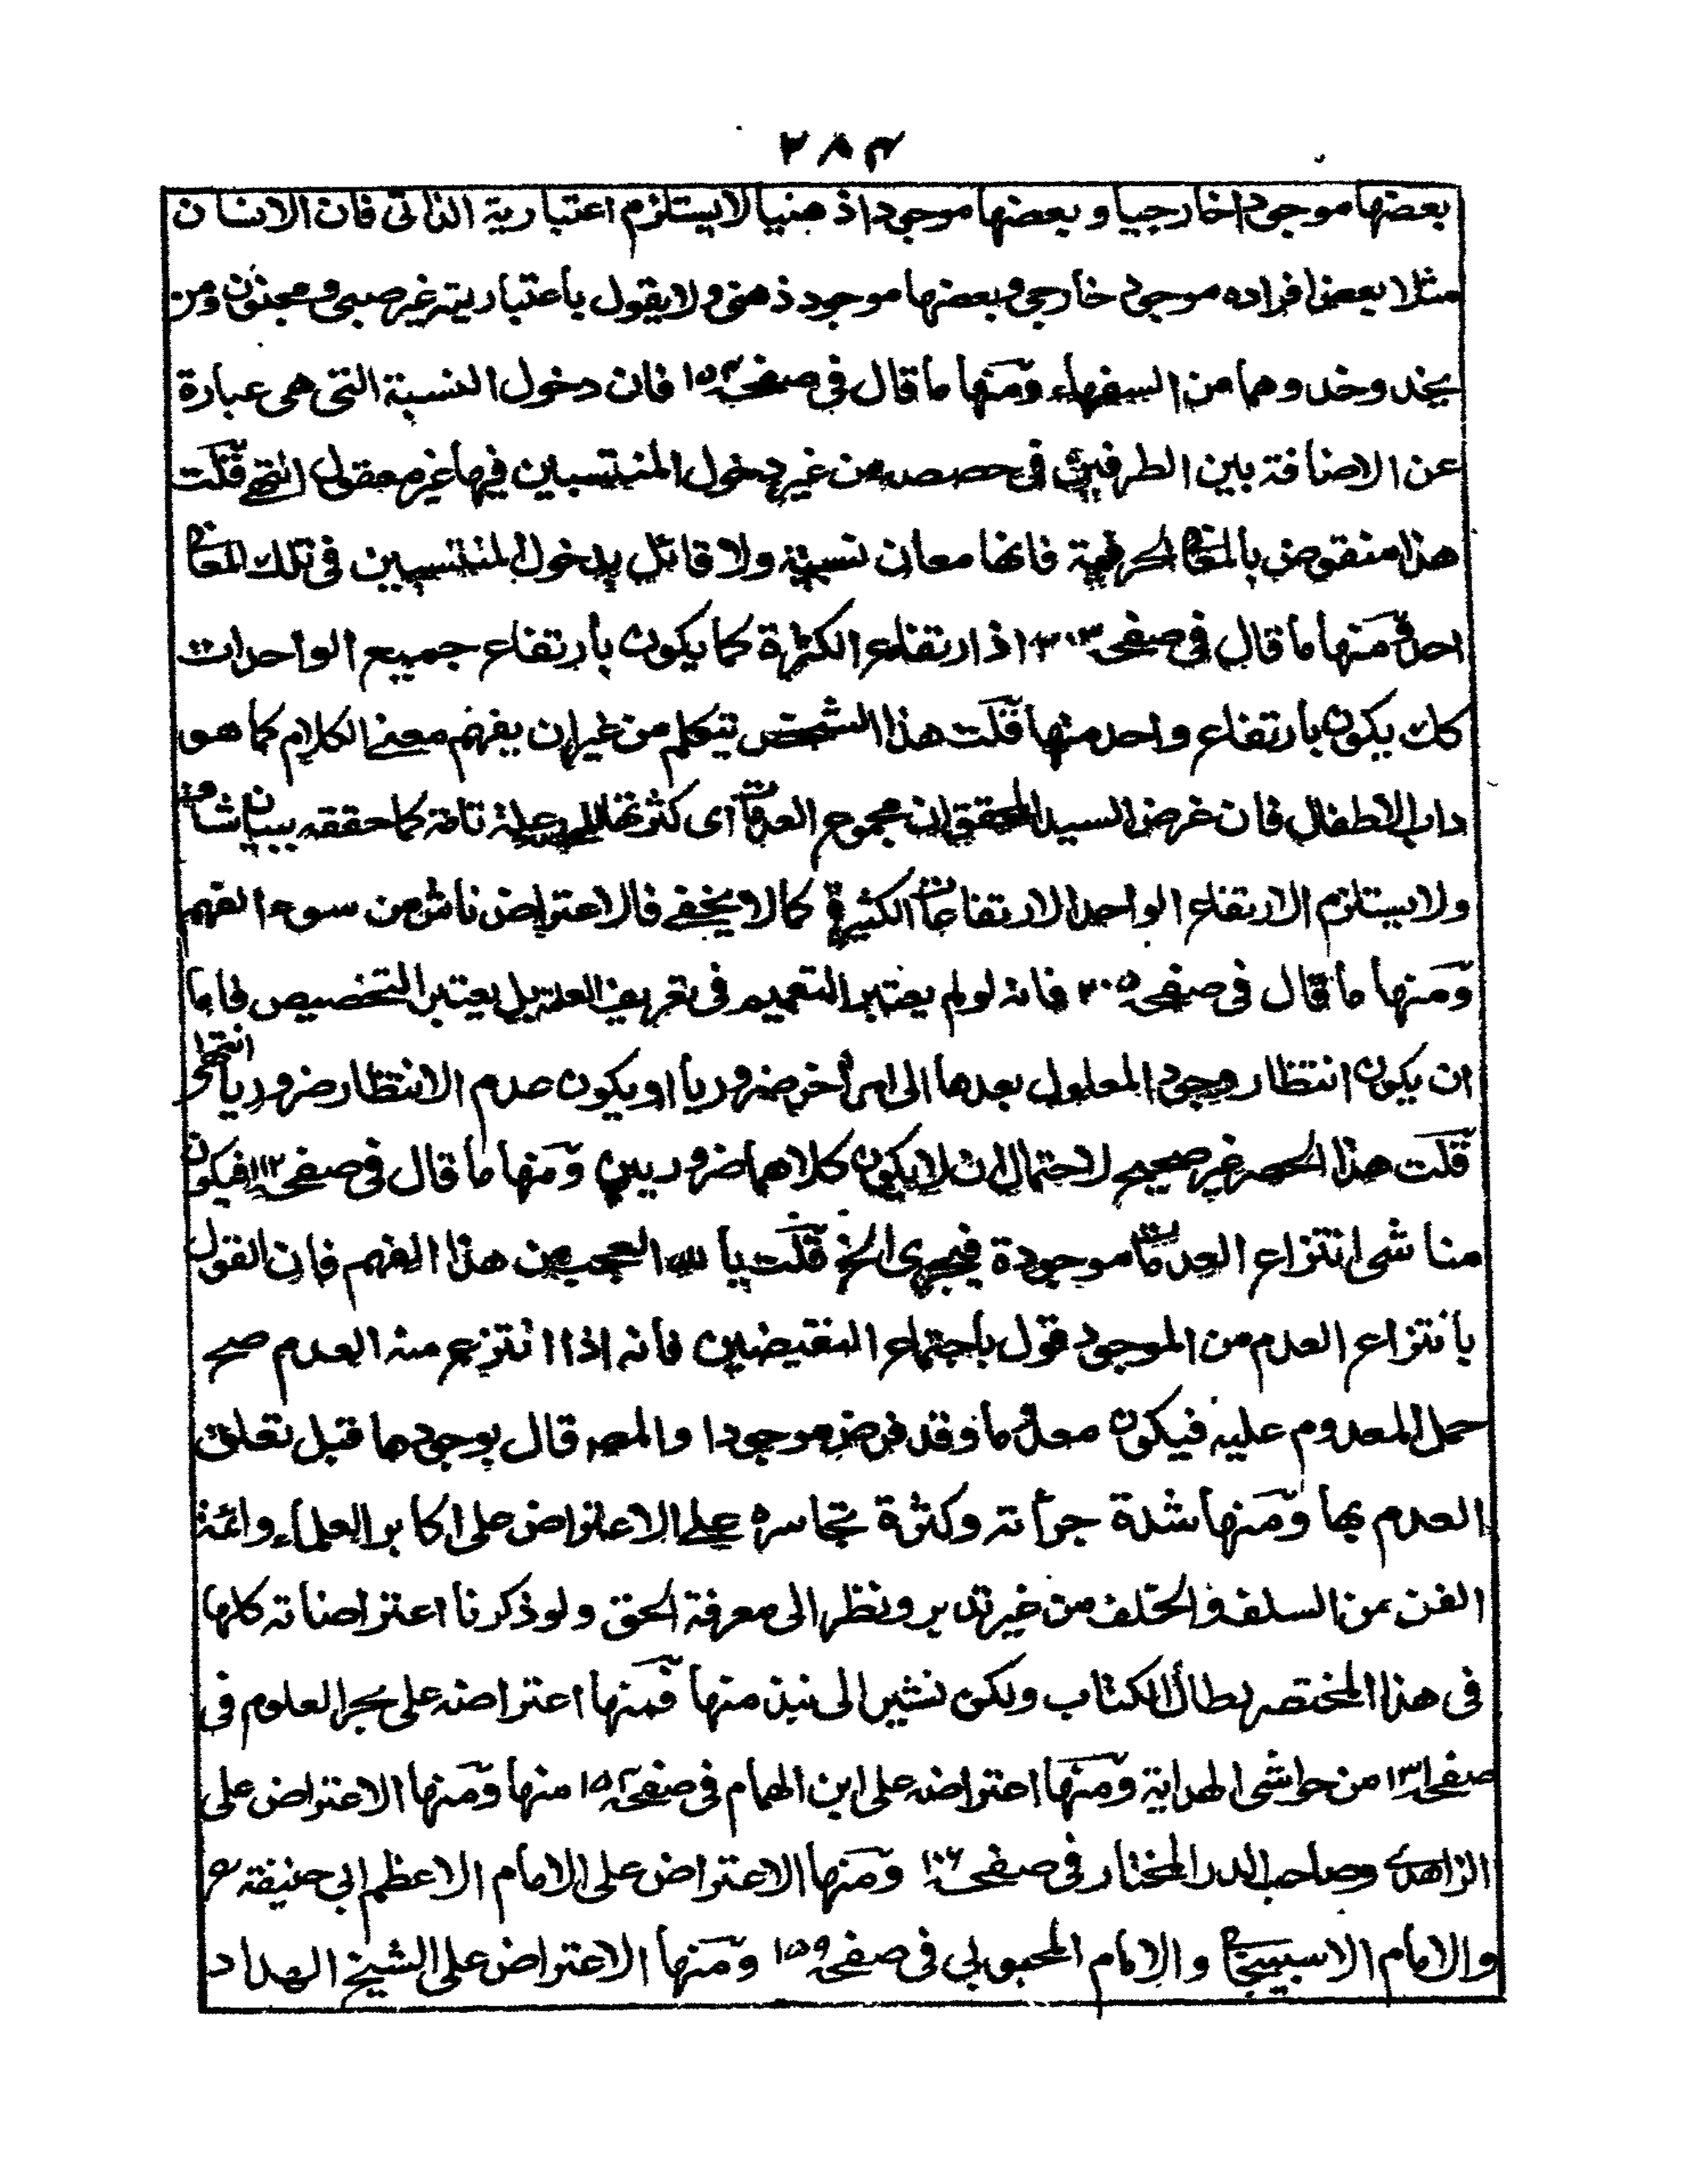 ٢٨٤
بعضها موجودا خارجيا وبعضها موجودا ذهنيا لا يستلزم اعتبارية الذاتى فان الانسان
مثلا بعض افراده موجود خارجى وبعضها موجود ذهنى ولا يقول باعتباريته غير صبى ومجنون ومن
يحذو حذوهما من السفهاء ومنها ما قال فى صفحه ١٥٢ فان دخول النسبة التى هى عبارة
عن الاضافة بين الطرفين فى حصصه من غير دخول المنتسبين فيها غير معقول انتهى قلت
هذا منقوض بالمعانى الحرفية فانها معان نسبية ولا قائل بدخول المنتسبين فى تلك المعانى
احد ومنها ما قال فى صفحه ٢٠٣ اذ ارتفاع الكثرة كما يكون بارتفاع جميع الواحدات
كك يكون بارتفاع واحد منها قلت هذا الشخص يتكلم من غير ان يفهم معنى الكلام كما هو
داب الاطفال فان غرض السيد المحقق ان مجموع العدمات اى كثرتها علة تامة كما حققه ببيان شاف
ولا يستلزم الارتفاع الواحد الارتفاعات الكثيرة كما لا يخفى فالاعتراض ناش من سوء الفهم
ومنها ما قال فى صفحه ٢٠٥ فانه لو لم يعتبر التعميم فى تعريف العلة بل يعتبر التخصيص فاما
ان يكون انتظار وجود المعلول بعدها الى امر آخر ضروريا او يكون عدم الانتظار ضروريا انتهى
قلت هذا الحصر غير صحيح لاحتمال ان لا يكون كلاهما ضروريين ومنها ما قال فى صفحه ١١٢ فيكون
مناشى انتزاع العدمات موجودة فيجرى الخ قلت يا لله العجب من هذا الفهم فان القول
بانتزاع العدم من الموجود قول باجتماع النقيضين فانه اذا انتزع منه العدم صح
حمل المعدوم عليه فيكون معدوما وقد فرض موجودا والمصـ قال بوجودها قبل تعلق
العدم بها ومنها شدة جرأته وكثرة تجاسره على الاعتراض على اكابر العلماء وائمة
الفن من السلف والخلف من غير تدبر ونظر الى معرفة الحق ولو ذكرنا اعتراضاته كلها
فى هذا المختصر لطال الكتاب ولكن نشير الى نبذ منها فمنها اعتراضه على بحر العلوم فى
صفحه ١٣ من حواشى الهداية ومنها اعتراضه على ابن الهمام فى صفحه ١٥٢ منها ومنها الاعتراض على
الزاهدى وصاحب الدر المختار فى صفحه ١٠٦ ومنها الاعتراض على الامام الاعظم ابى حنيفة رح
والامام الاسبيجابى والامام المحبوبى فى صفحه ١٥٩ ومنها الاعتراض على الشيخ الهداد